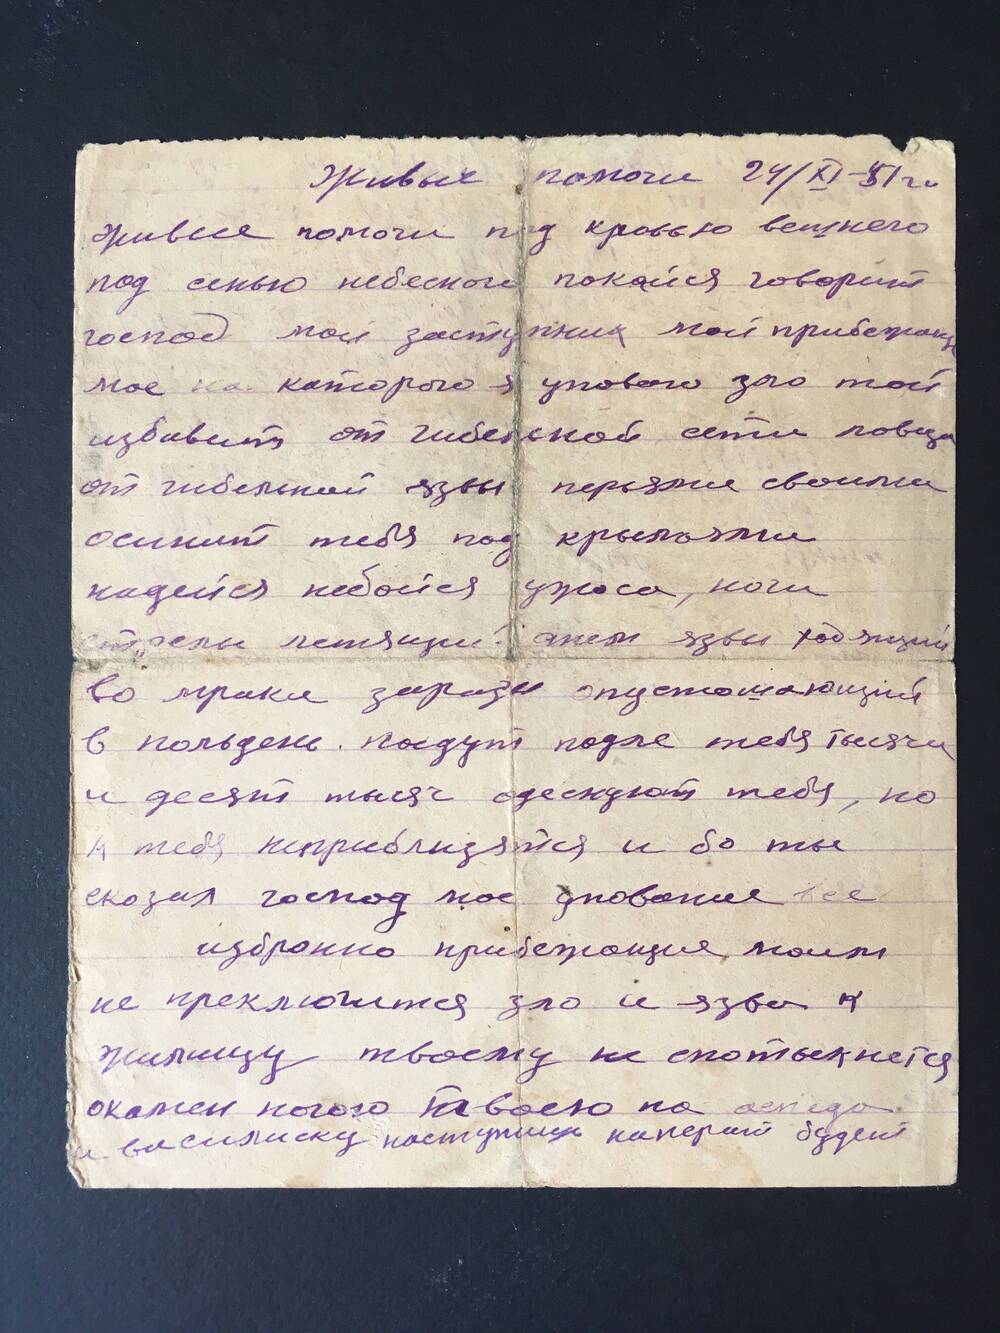 Живых помочи 24/XI-51 г.
Живые помочи под кровью вешнего
под сенью небесного покойся говорит
господ мой заступник мой прибежащ
мое на каторого я уповаю
избавит от гибельной сети ловца
от гибельной язвы перьями своими
осинит тебя под крыльями
надейся небойся ужоса, ночи
стрелы летящий днем язвы ходящий
во мраке заразы опустошающий
в польдень. падут подле тебя тысячи
и десят тысяч одескуют тебя, но
к тебе неприблизятся и бо ты
сказал господ мое упование все
избронно прибежащие, моим
не преключится зло и язва к
жилищу твоему не спотыкнется
окамен ногою твоею на аспида
и василиску наступишь наперат будет